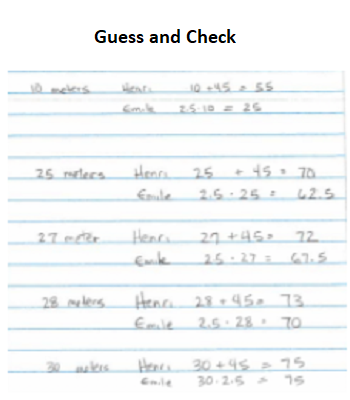 Guess and Check
10 meters Henri 10 + 45 = 55
Emile 2.5 · 10 = 25
25 meters Henri 25 + 45 = 70
Emile 2.5 · 25 = 62.5
27 meter Henri 27 + 45 = 72
Emile 2.5 · 27 = 67.5
28 meters Henri 28 + 45 = 73
Emile 2.5 · 28 = 70
30 meters Henri 30 + 45 = 75
Emile 30 · 2.5 = 75